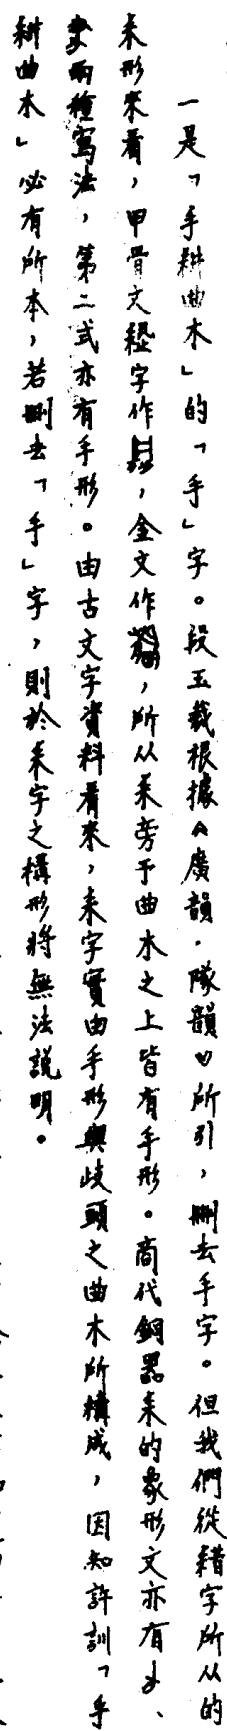 一是「手耕曲木」的「手」字。段玉裁根據《廣韻．隊韻》所引，刪去手字。但我們從耤字所从的
耒形來看，甲骨文耤字作，金文作，所从耒旁于曲木之上皆有手形。商代銅器耒的象形文亦有、
兩種寫法，第二式亦有手形。由古文字資料看來，耒字實由手形與歧頭之曲木所構成，因知許訓「手
耕曲木」必有所本，若刪去「手」字，則於耒字之構形將無法說明。